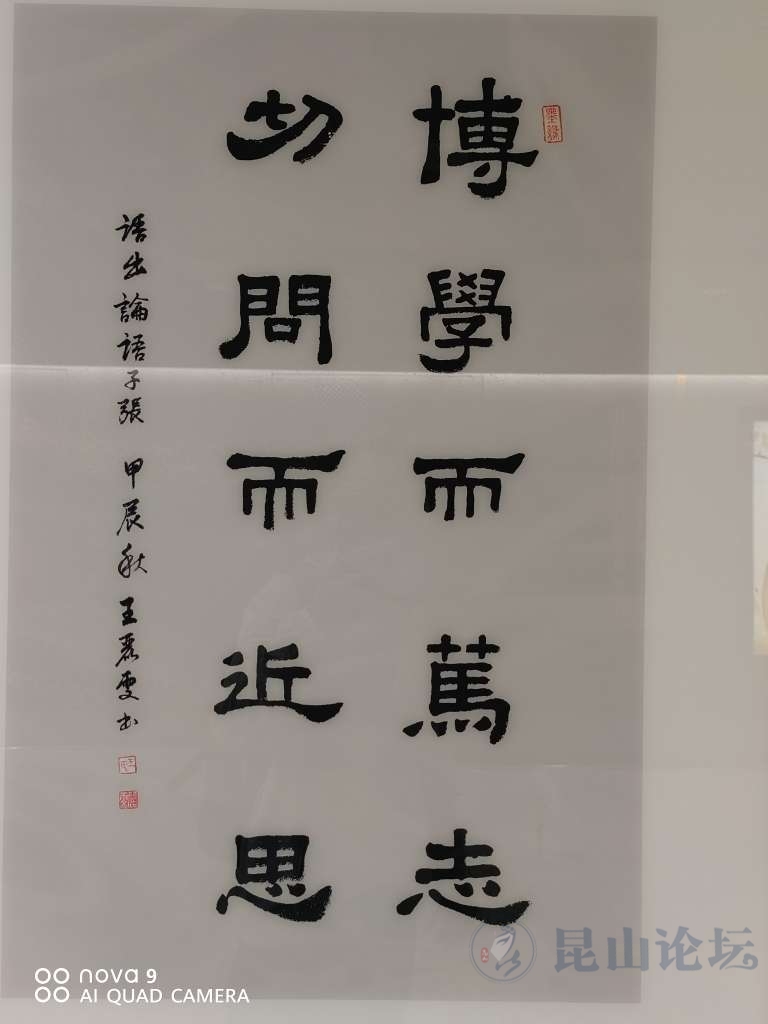 博學而篤志
切問而近思
語出論語子張 甲辰秋 王麗雯书
昆山论坛
nova 9
AI QUAD CAMERA